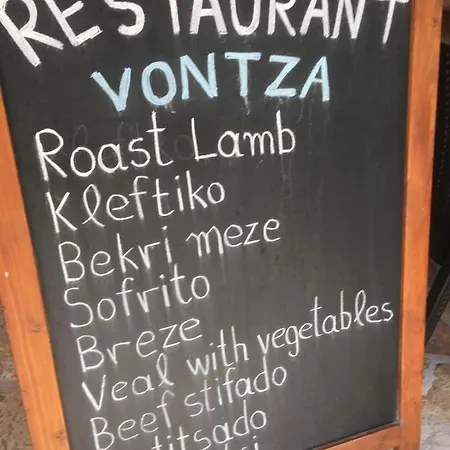 RESTAURANT
VONTZA
Roast Lamb
Kleftiko
Bekri meze
Sofrito
Breze
Veal with vegetables
Beef stifado